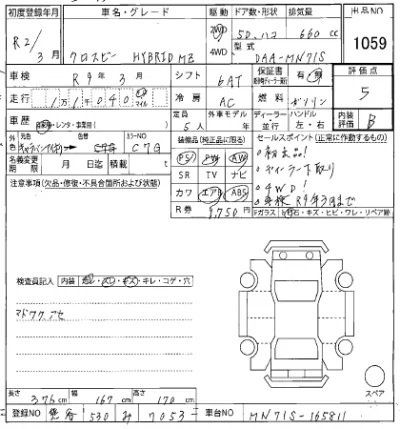 初度登録年月 車名・グレード 駆動 ドア数・形状 排気量 出品NO
R2/3月 クロスビー HYBRID MZ 2WD 4WD 5D. 660cc 1059
型式 DAA-MN71S
車検 R9年3月 シフト 6AT 保証書 有・無 評価点
走行 11040 マイル 冷房 AC 燃料 ガソリン 5
車歴 レンタ・事業用 定員 5人 外車モデル年 ディーラー 並行 ハンドル 左・右 内装評価 B
元色 色替 カラーNO C7G
名義変更期限 月 日迄 積載 t
装備品(純正品に限る) セールスポイント(正常に作動するもの)
PS PW AW
SR TV ナビ
カワ エアB ABS
R券 9,750円
4WD!
車検R9年3月まで
注意事項(欠品・修復・不具合箇所および状態)
Fガラス キズ・ヒビ・ワレ・リペア跡
検査員記入 内装 キズ・キレ・コゲ・穴
マドワクアセ
スペア
長さ 376cm 幅 167cm 高さ 170cm
登録NO 530 み 7053 車台NO MN71S-165811